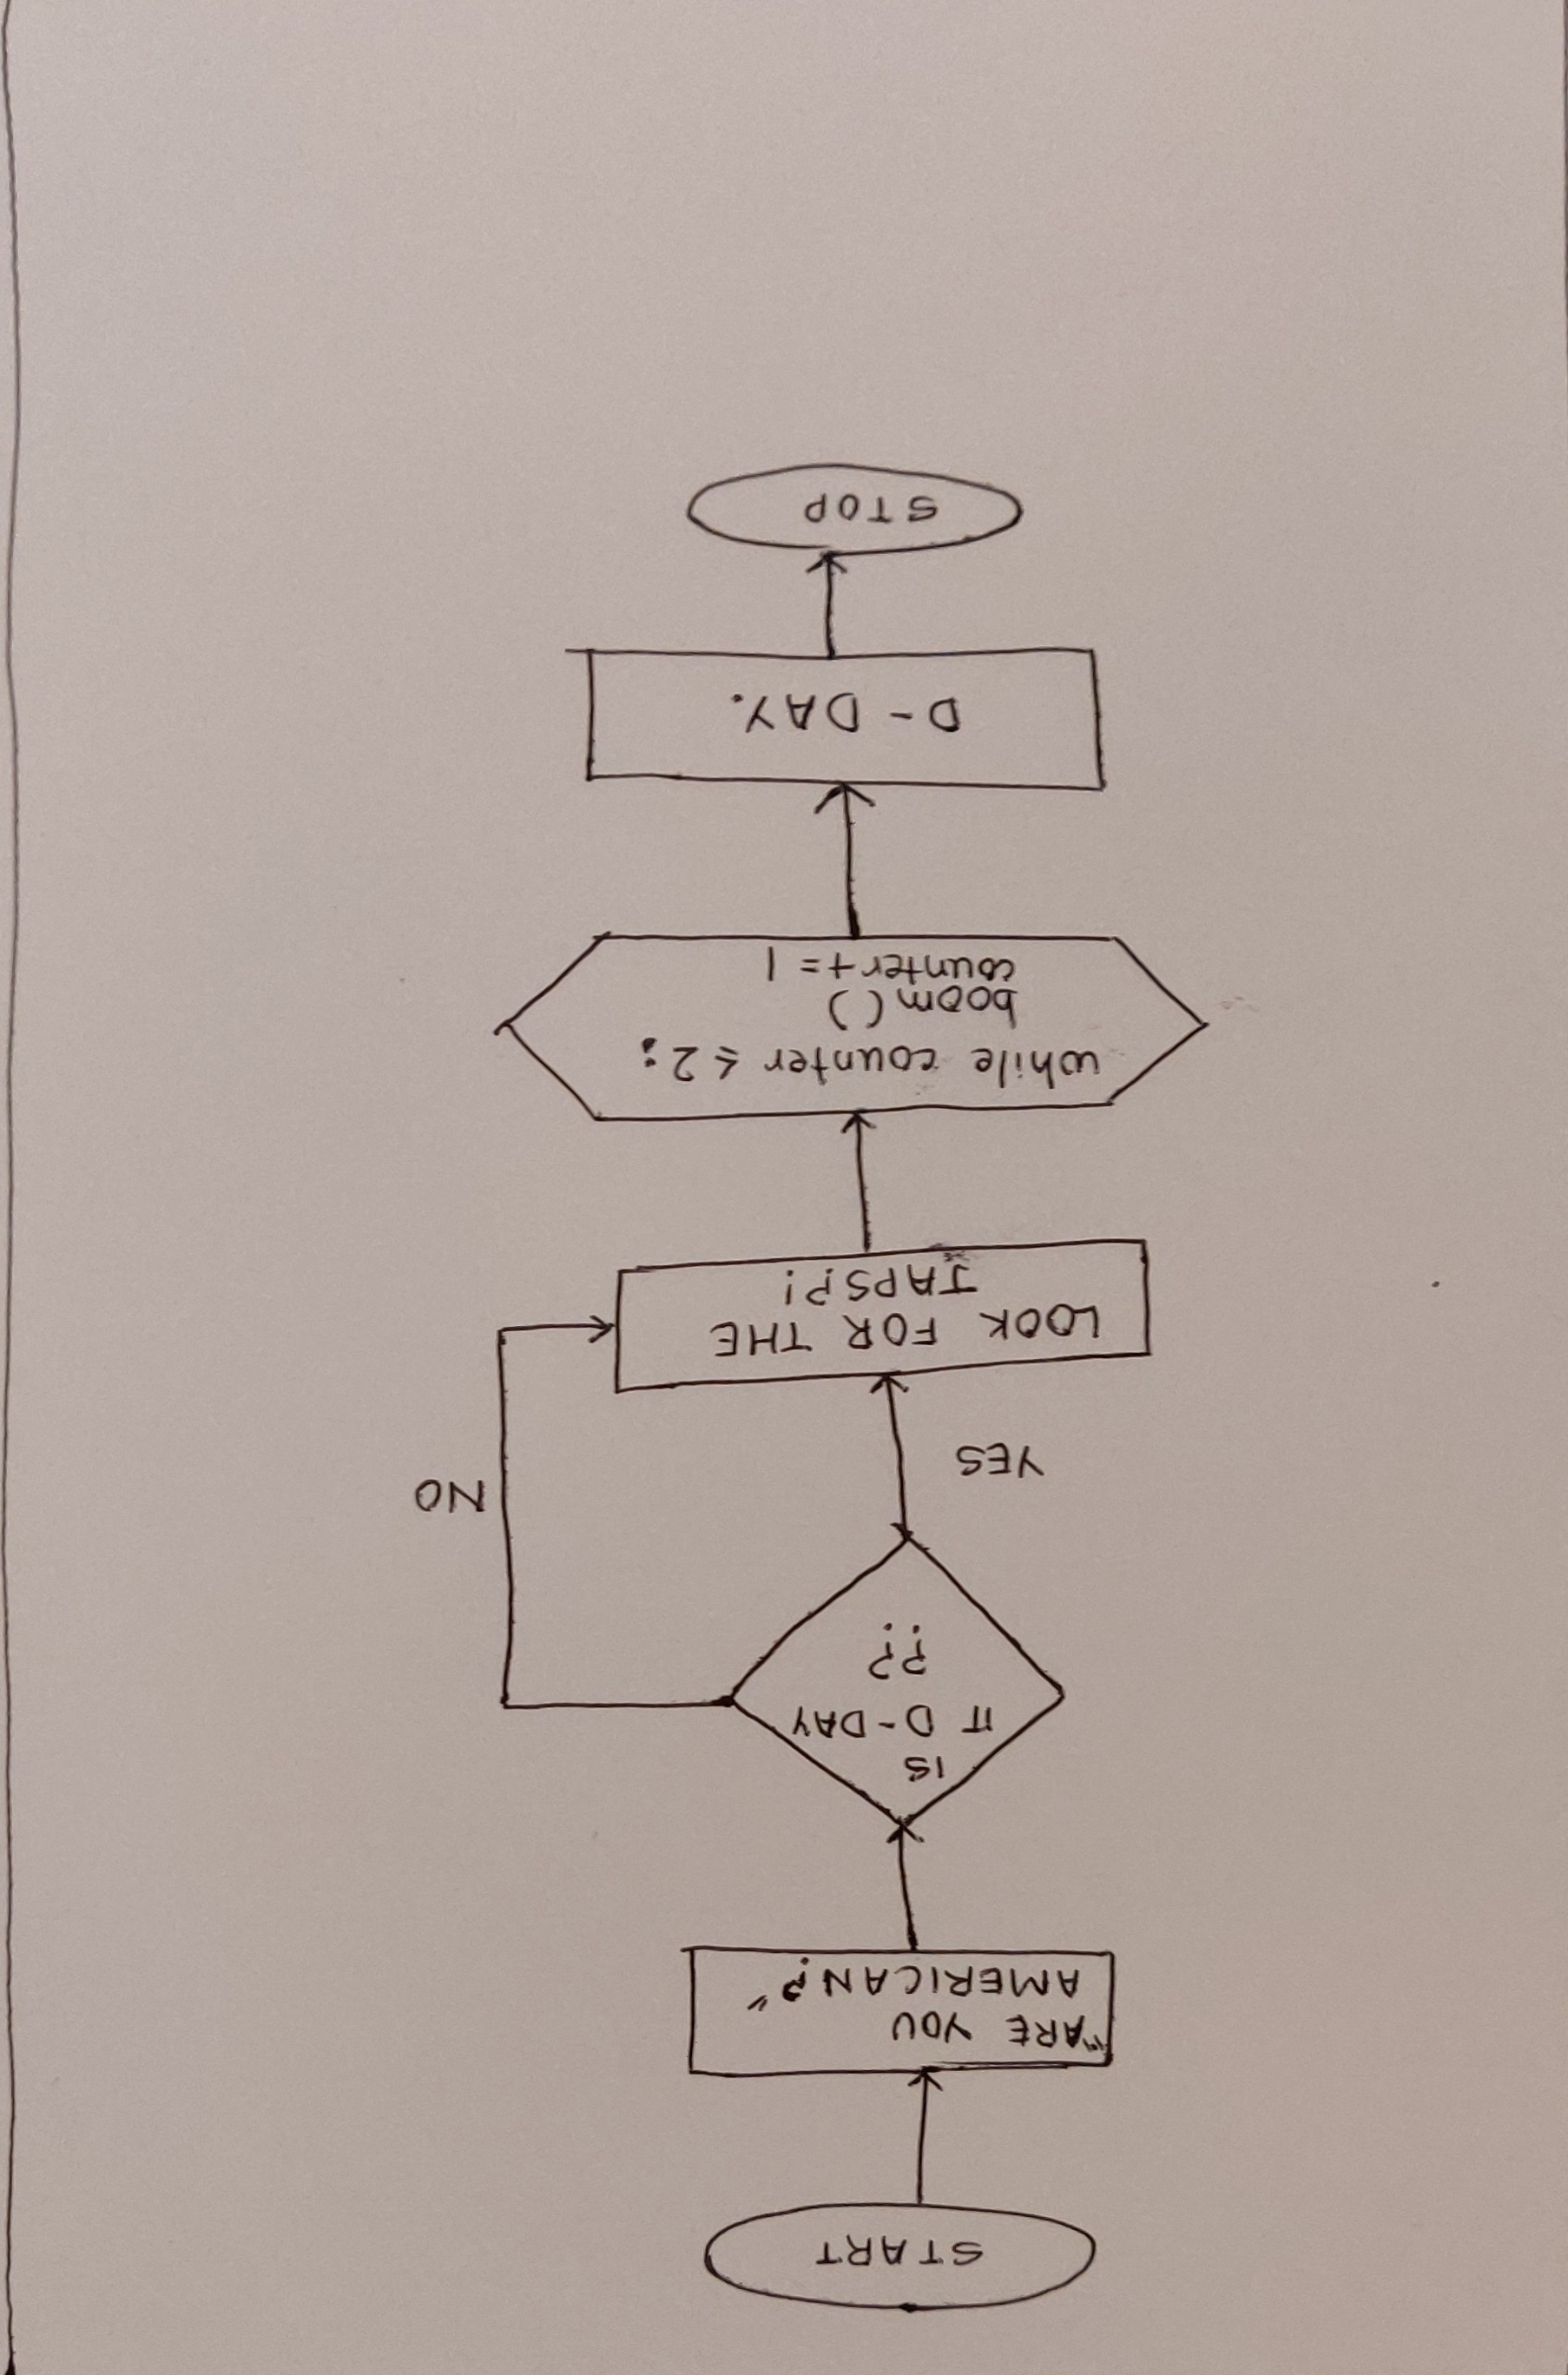 START
"ARE YOU
AMERICAN?"
IS
IT D-DAY
??
YES
NO
LOOK FOR THE
JAPS?!
while counter ≤ 2;
boom()
counter += 1
D-DAY.
STOP